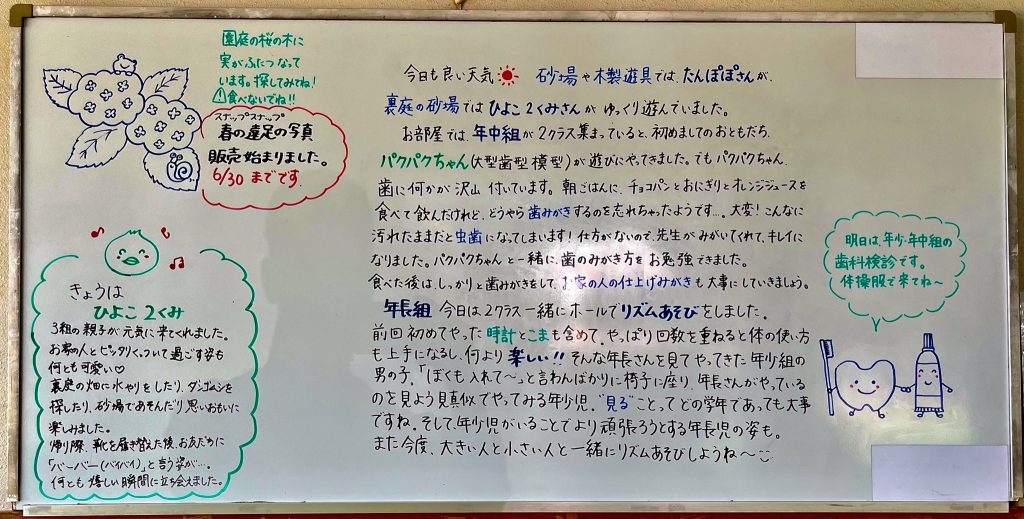 園庭の桜の木に
実がふたつなって
います。探してみてね!
食べないでね!!
スナップスナップ
春の遠足の写真
販売始まりました。
6/30 までです
きょうは
ひよこ2くみ
3組の親子が元気に来てくれました。
お家の人とピッタリくっついて過ごす姿も
何とも可愛い♡
裏庭の畑に水やりをしたり、ダンゴムシを
探したり、砂場であそんだり思いおもいに
楽しみました。
帰り際、靴を履き替えた後、お友だちに
「バーバー(バイバイ)」と言う姿が…。
何とも嬉しい瞬間に立ち会えました。
今日も良い天気 砂場や木製遊具では、たんぽぽさんが、
裏庭の砂場ではひよこ2くみさんが ゆっくり遊んでいました。
お部屋では、年中組が2クラス集まっていると、初めましてのおともだち、
パクパクちゃん(大型歯型模型)が遊びにやってきました。でもパクパクちゃん、
歯に何かが沢山付いています。朝ごはんに、チョコパンとおにぎりとオレンジジュースを
食べて飲んだけれど、どうやら歯みがきするのを忘れちゃったようです…。大変!こんなに
汚れたままだと虫歯になってしまいます!仕方がないので、先生がみがいてくれて、キレイに
なりました。パクパクちゃんと一緒に、歯のみがき方をお勉強できました。
食べた後は、しっかりと歯みがきをして、お家の人の仕上げみがきも大事にしていきましょう。
年長組 今日は2クラス一緒にホールでリズムあそびをしました。
前回初めてやった時計とこまも含めて、やっぱり回数を重ねると体の使い方
も上手になるし、何より楽しい!!そんな年長さんを見てやってきた年少組の
男の子、「ぼくも入れて〜」と言わんばかりに椅子に座り、年長さんがやっている
のを見よう見真似でやってみる年少児。"見る"ことってどの学年であっても大事
ですね。そして、年少児がいることでより頑張ろうとする年長児の姿も。
また今度、大きい人と小さい人と一緒にリズムあそびしようね〜
明日は、年少・年中組の
歯科検診です。
体操服で来てね〜